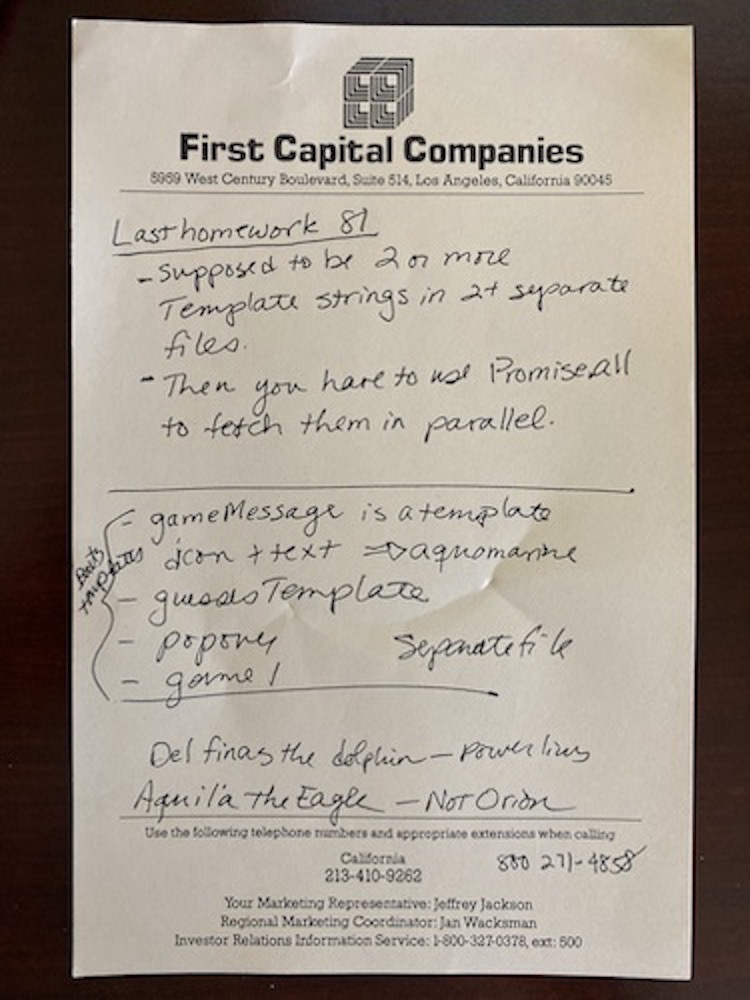 First Capital Companies
5959 West Century Boulevard, Suite 514, Los Angeles, California 90045
Last homework 81
- Supposed to be 2 or more
Template strings in 2+ separate
files.
- Then you have to use Promise.all
to fetch them in parallel.
- gameMessage is a template
icon + text => aquomarine
- guessesTemplate
- popover
Separate file
- game 1
templates
Delfinas the dolphin - power lines
Aquila the Eagle - Not Orion
Use the following telephone numbers and appropriate extensions when calling
California
213-410-9262
800 271-4858
Your Marketing Representative: Jeffrey Jackson
Regional Marketing Coordinator: Jan Wacksman
Investor Relations Information Service: 1-800-327-0378, ext: 500